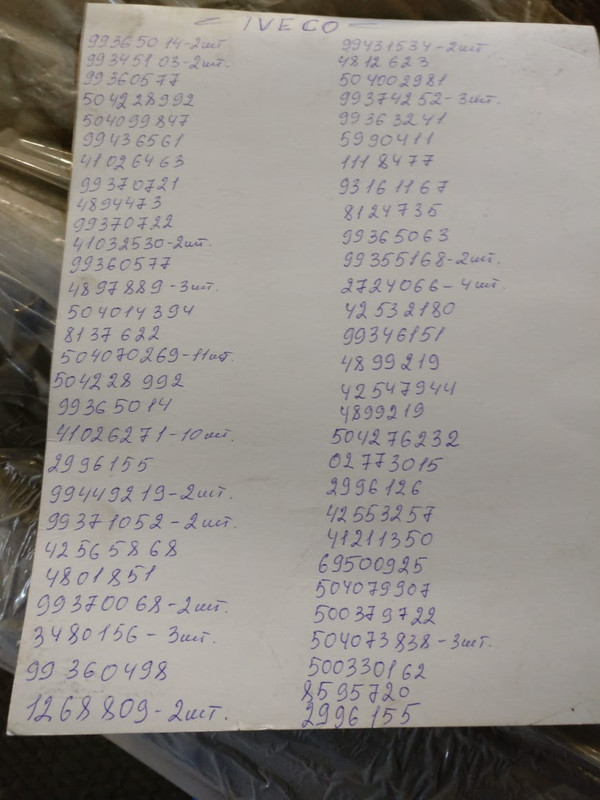 IVECO
99365014-2шт
99345103-2шт.
99360577
504228992
504099847
99436561
41026463
99370721
4894473
99370722
41032530-2шт.
99360577
4897889-3шт.
504014394
8137622
504070269-11шт.
504228992
99365014
41026271-10шт.
2996155
99449219-2шт.
99371052-2шт.
42565868
4801851
99370068-2шт.
3480156-3шт.
99360498
1268809-2шт.
99431534-2шт
4812623
504002981
99374252-3шт.
99363241
5990411
1118477
93161167
8124735
99365063
99355168-2шт.
2724066-4шт.
42532180
99346151
4899219
42547944
4899219
504276232
02773015
2996126
42553257
41211350
69500925
504079907
500379722
504073838-3шт.
500330162
8595720
2996155